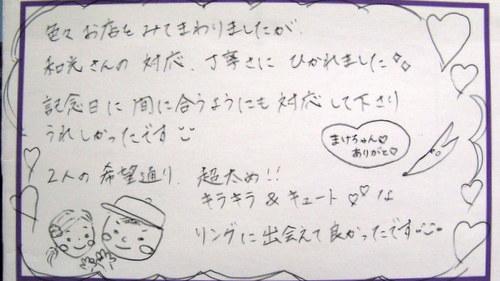 色々お店をみてまわりましたが、
和光さんの対応、丁寧さにひかれました
記念日に間に合うようにも対応して下さり
うれしかったです
まけちゃん♡
ありがと♡
2人の希望通り、超太め!!
キラキラ&キュート♡♡な
リングに出会えて良かったです